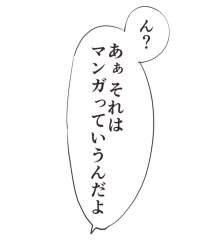 ん？
あぁそれは
マンガっていうんだよ